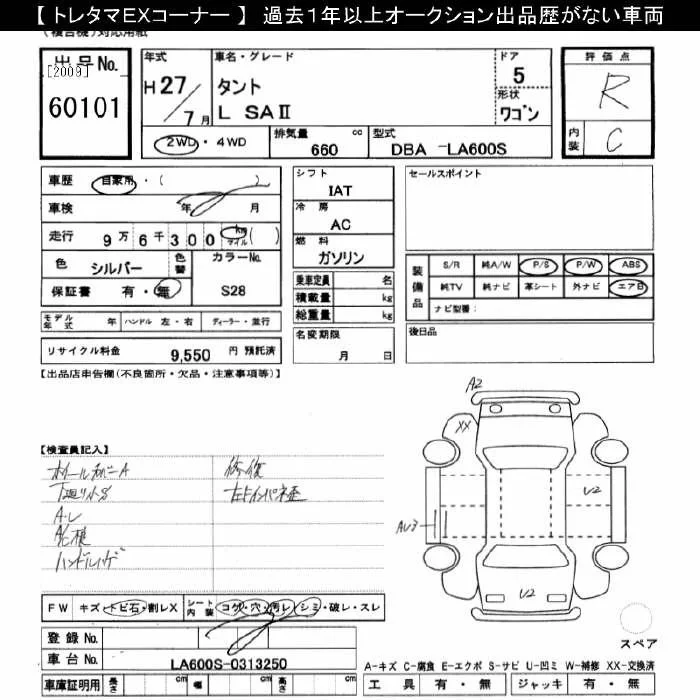 【 トレタマEXコーナー 】 過去1年以上オークション出品歴がない車両
(複合機)対応用紙
出品No.
[2009]
60101
年式
H27/7月
車名・グレード
タント
L SAⅡ
ドア
5
形状
ワゴン
2WD・4WD
排気量 cc
660
型式
DBA -LA600S
評価点
R
内装
C
車歴 自家用・( )
車検 年 月
走行 9万6千300 km マイル ( )
色 シルバー
色替
カラーNo.
S28
保証書 有・無
モデル年式 年 ハンドル 左・右 ディーラー・並行
リサイクル料金 9,550 円 預託済
シフト
IAT
冷房
AC
燃料
ガソリン
乗車定員 名
積載量 kg
総重量 kg
名変期限
月 日
セールスポイント
装備品
S/R 純A/W P/S P/W ABS
純TV 純ナビ 革シート 外ナビ エアB
ナビ型番:
後日品
【出品店申告欄(不良箇所・欠品・注意事項等)】
【検査員記入】
A・レ
修復
A2
XX
U2
AU3
U2
FW キズ・トビ石・割レX
シート内装 コゲ・穴・汚レ・シミ・破レ・スレ
登録No.
車台No. LA600S-0313250
車庫証明用 長さ cm 幅 cm 高さ cm
スペア
A-キズ C-腐食 E-エクボ S-サビ U-凹ミ W-補修 XX-交換済
工具 有・無 ジャッキ 有・無